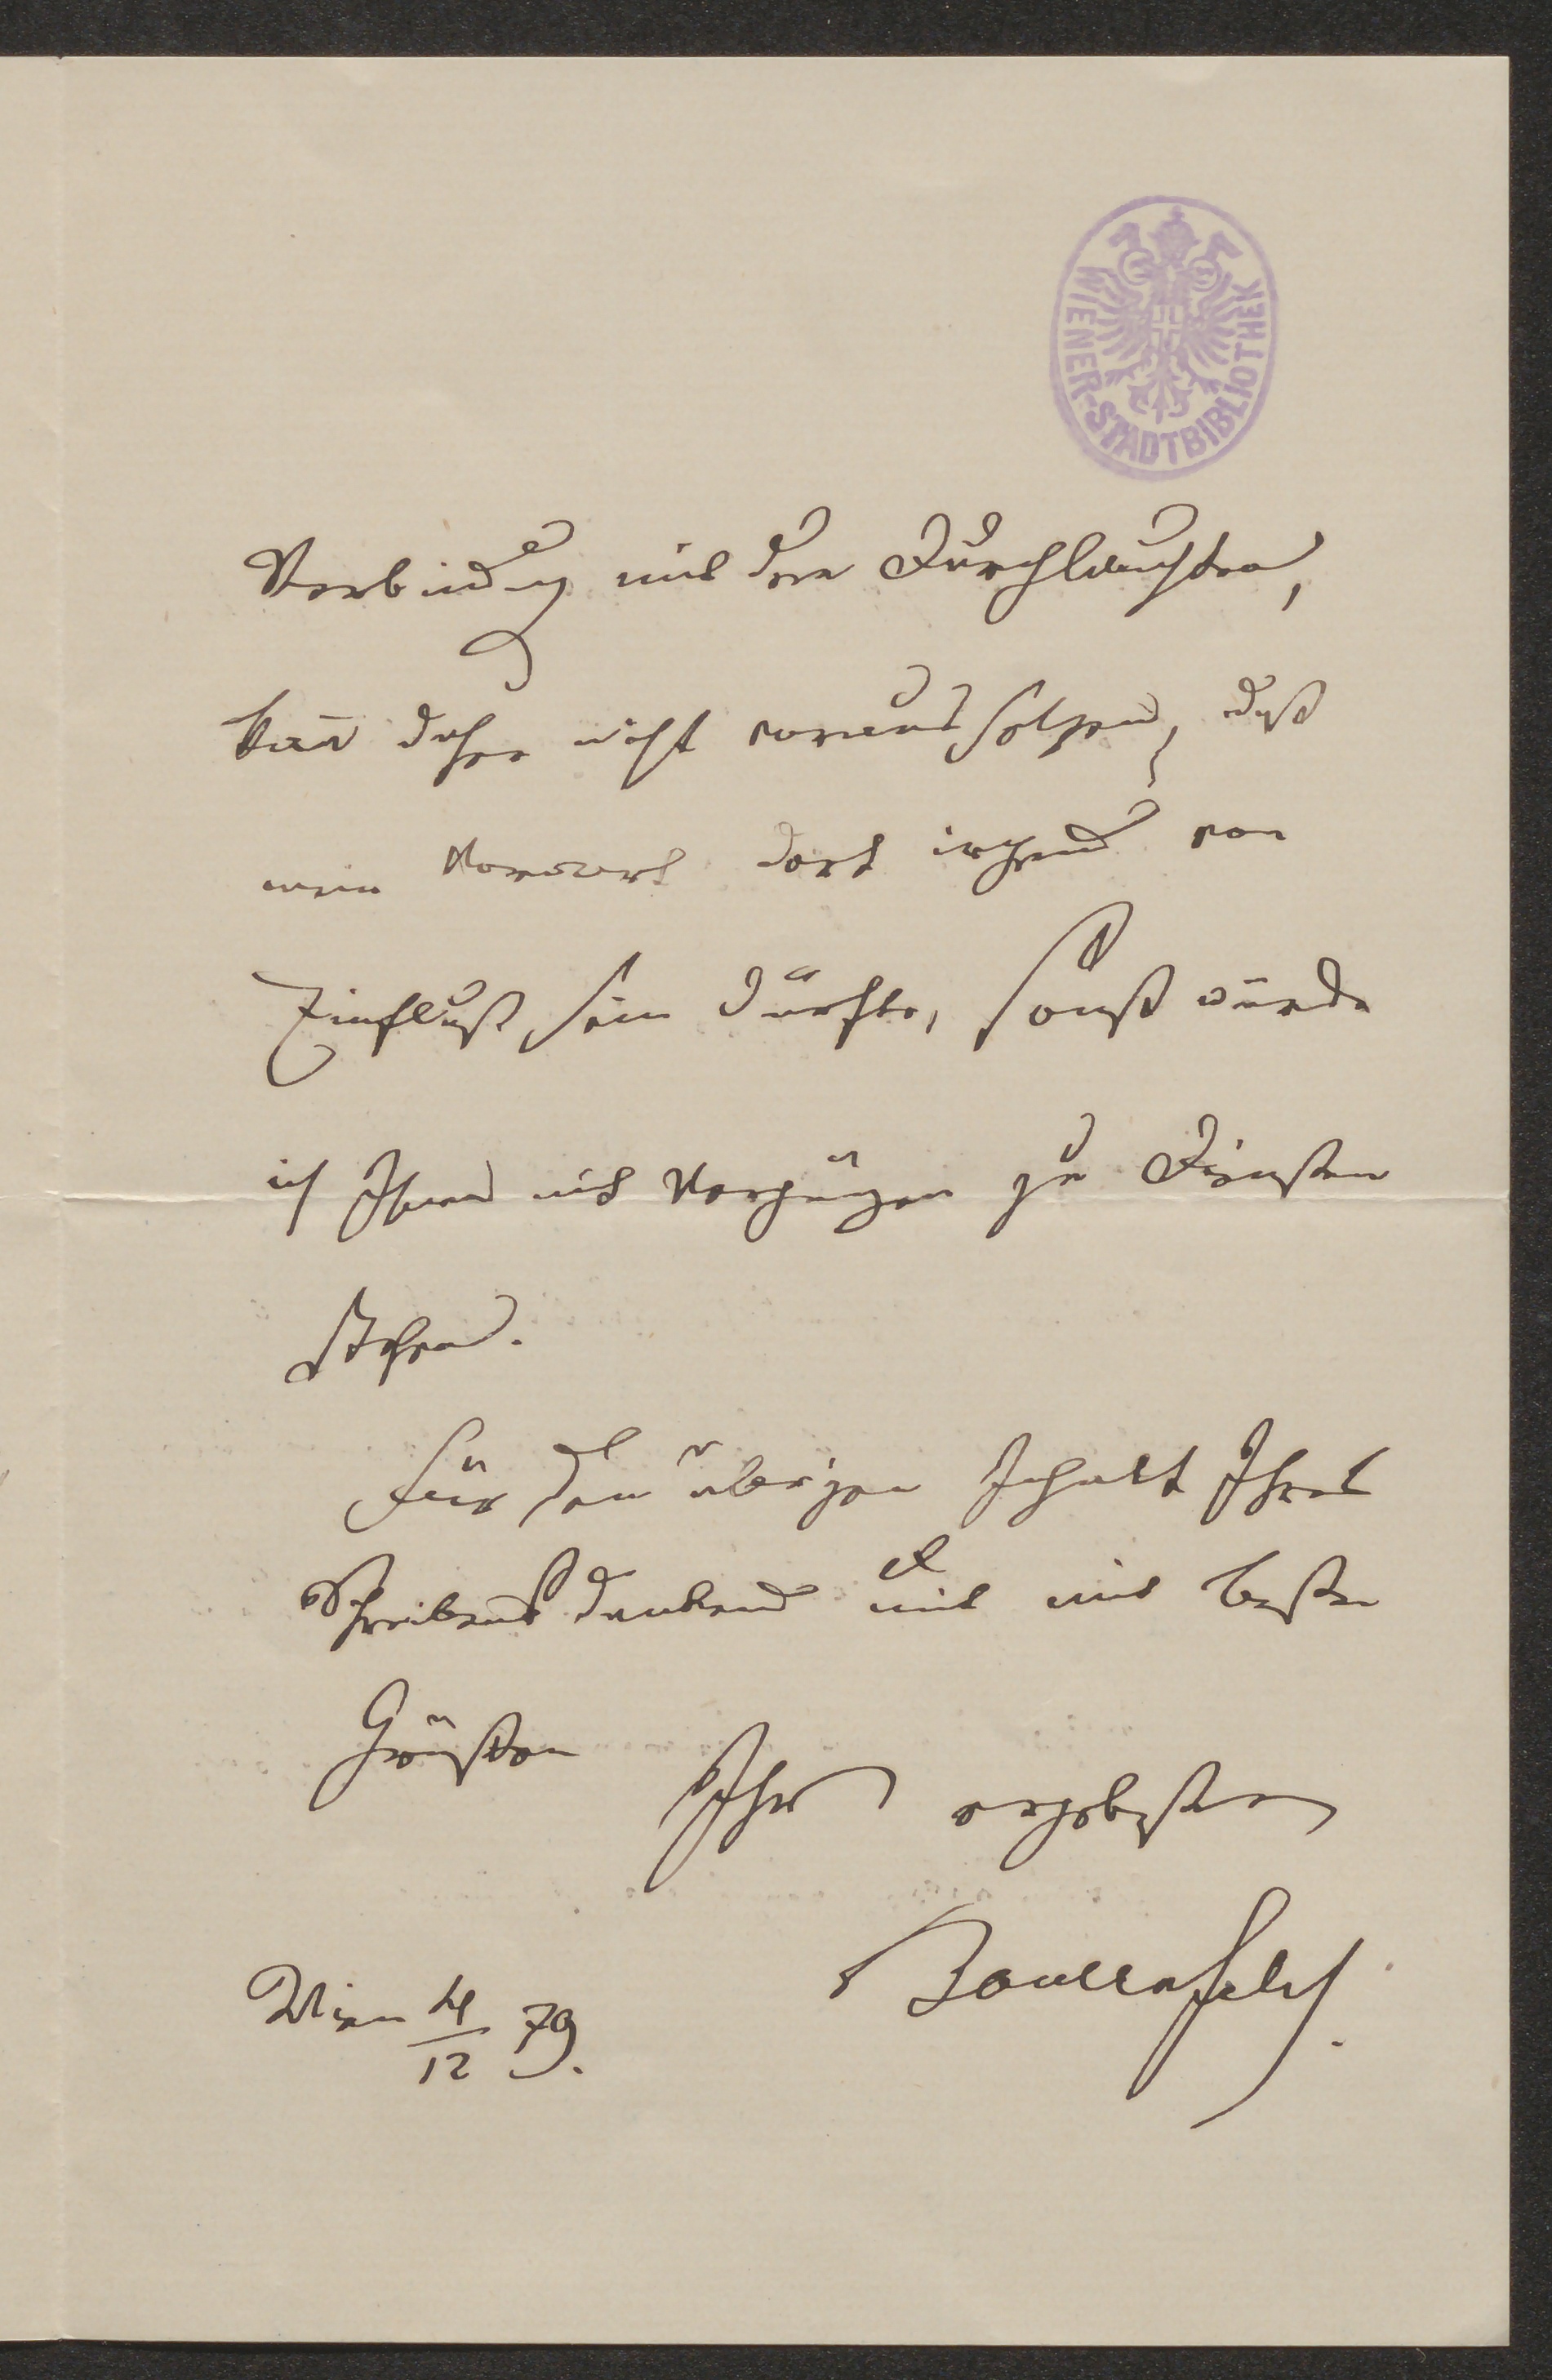 WIENER-STADTBIBLIOTHEK
Verbindung mit dem Durchlauchten,
kan̄ daher nicht voraussetzen, daß
mein Vorwort dort irgend von
Einfluß sein dürfte, sonst würde
ich Ihnen mit Vergnügen zu Diensten
stehen.
Für den übrigen Inhalt Ihres
Schreibens dankend mit besten
Grüßen
Ihr ergebenster
Bauernfeld.
Wien 4/12 79.